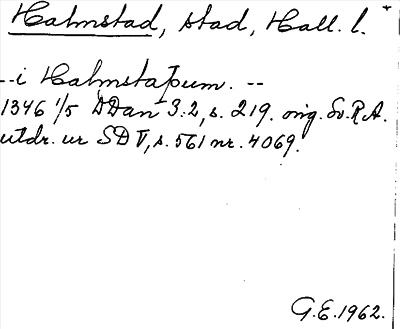 Halmstad, stad, Hall. l. +
--i Halmstaþum. --
1346 1/5 DDan 3:2, s. 219. orig. Sv.R.A.
utdr. ur SD V, s. 561 nr. 4069.
G.E. 1962.